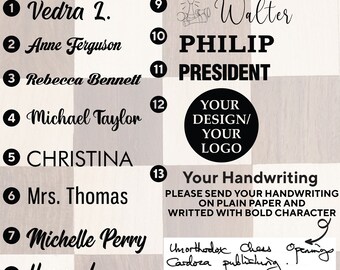 1 Vedra L.
2 Anne Ferguson
3 Rebecca Bennett
4 Michael Taylor
5 CHRISTINA
6 Mrs. Thomas
7 Michelle Perry
9 Walter
10 PHILIP
11 PRESIDENT
12 YOUR
DESIGN/
YOUR
LOGO
13 Your Handwriting
PLEASE SEND YOUR HANDWRITING
ON PLAIN PAPER AND
WRITTED WITH BOLD CHARACTER
Unorthodox Chess Openings
Cardoza publishing.